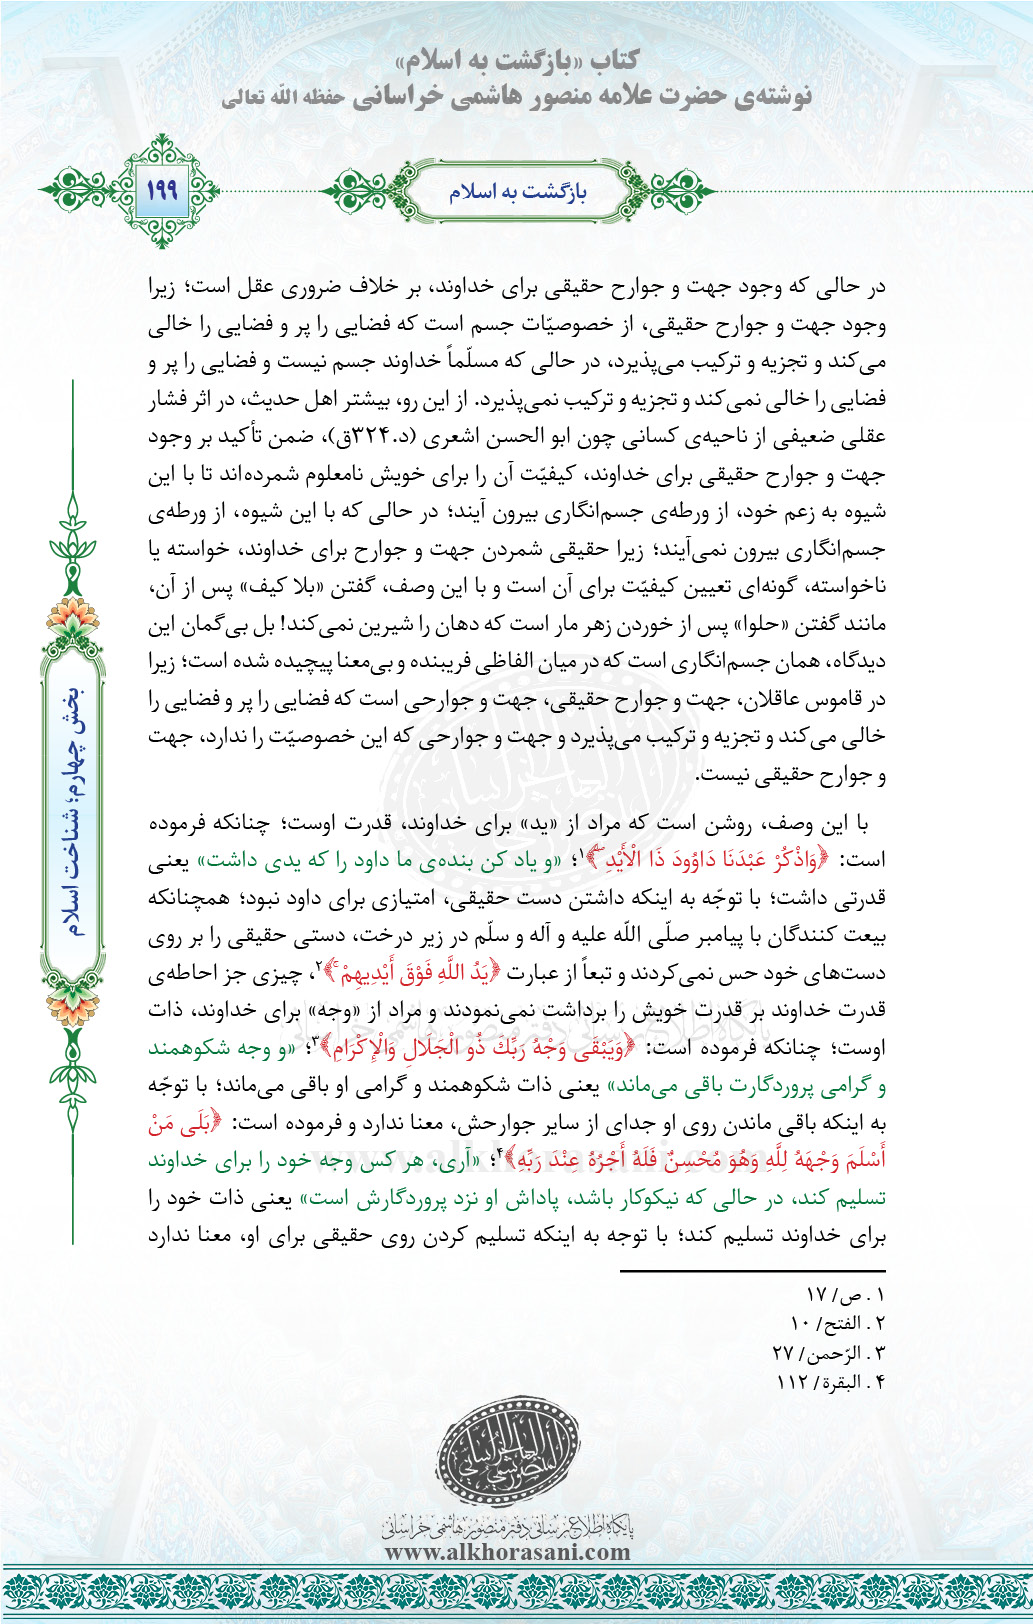 کتاب «بازگشت به اسلام»
نوشته‌ی حضرت علامه منصور هاشمی خراسانی حفظه الله تعالی
بازگشت به اسلام
۱۹۹
در حالی که وجود جهت و جوارح حقیقی برای خداوند، بر خلاف ضروری عقل است؛ زیرا
وجود جهت و جوارح حقیقی، از خصوصیّات جسم است که فضایی را پر و فضایی را خالی
می‌کند و تجزیه و ترکیب می‌پذیرد، در حالی که مسلّماً خداوند جسم نیست و فضایی را پر و
فضایی را خالی نمی‌کند و تجزیه و ترکیب نمی‌پذیرد. از این رو، بیشتر اهل حدیث، در اثر فشار
عقلی ضعیفی از ناحیه‌ی کسانی چون ابو الحسن اشعری (د.۳۲۴ق)، ضمن تأکید بر وجود
جهت و جوارح حقیقی برای خداوند، کیفیّت آن را برای خویش نامعلوم شمرده‌اند تا با این
شیوه به زعم خود، از ورطه‌ی جسم‌انگاری بیرون آیند؛ در حالی که با این شیوه، از ورطه‌ی
جسم‌انگاری بیرون نمی‌آیند؛ زیرا حقیقی شمردن جهت و جوارح برای خداوند، خواسته یا
ناخواسته، گونه‌ای تعیین کیفیّت برای آن است و با این وصف، گفتن «بلا کیف» پس از آن،
مانند گفتن «حلوا» پس از خوردن زهر مار است که دهان را شیرین نمی‌کند! بل بی‌گمان این
دیدگاه، همان جسم‌انگاری است که در میان الفاظی فریبنده و بی‌معنا پیچیده شده است؛ زیرا
در قاموس عاقلان، جهت و جوارح حقیقی، جهت و جوارحی است که فضایی را پر و فضایی را
خالی می‌کند و تجزیه و ترکیب می‌پذیرد و جهت و جوارحی که این خصوصیّت را ندارد، جهت
و جوارح حقیقی نیست.
با این وصف، روشن است که مراد از «ید» برای خداوند، قدرت اوست؛ چنانکه فرموده
است: ﴿وَاذْكُرْ عَبْدَنَا دَاوُودَ ذَا الْأَيْدِ ۖ﴾۱؛ «و یاد کن بنده‌ی ما داود را که یدی داشت» یعنی
قدرتی داشت؛ با توجّه به اینکه داشتن دست حقیقی، امتیازی برای داود نبود؛ همچنانکه
بیعت کنندگان با پیامبر صلّی الله علیه و آله و سلّم در زیر درخت، دستی حقیقی را بر روی
دست‌های خود حس نمی‌کردند و تبعاً از عبارت ﴿يَدُ اللَّهِ فَوْقَ أَيْدِيهِمْ ۚ﴾۲، چیزی جز احاطه‌ی
قدرت خداوند بر قدرت خویش را برداشت نمی‌نمودند و مراد از «وجه» برای خداوند، ذات
اوست؛ چنانکه فرموده است: ﴿وَيَبْقَى وَجْهُ رَبِّكَ ذُو الْجَلَالِ وَالْإِكْرَامِ﴾۳؛ «و وجه شکوهمند
و گرامی پروردگارت باقی می‌ماند» یعنی ذات شکوهمند و گرامی او باقی می‌ماند؛ با توجّه
به اینکه باقی ماندن روی او جدای از سایر جوارحش، معنا ندارد و فرموده است: ﴿بَلَى مَنْ
أَسْلَمَ وَجْهَهُ لِلَّهِ وَهُوَ مُحْسِنٌ فَلَهُ أَجْرُهُ عِنْدَ رَبِّهِ﴾۴؛ «آری، هر کس وجه خود را برای خداوند
تسلیم کند، در حالی که نیکوکار باشد، پاداش او نزد پروردگارش است» یعنی ذات خود را
برای خداوند تسلیم کند؛ با توجه به اینکه تسلیم کردن روی حقیقی برای او، معنا ندارد
۱ . ص/ ۱۷
۲ . الفتح/ ۱۰
۳ . الرّحمن/ ۲۷
۴ . البقرة/ ۱۱۲
بخش چهارم؛ شناخت اسلام
پایگاه اطلاع رسانی دفتر منصور هاشمی خراسانی
www.alkhorasani.com